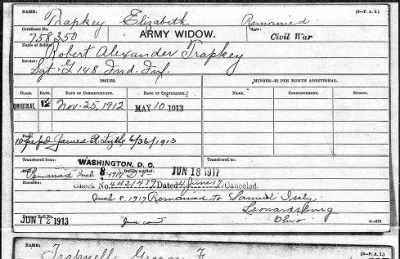 Name. Trapkey Elizabeth Remarried (3-F. A. I.)
Certificate No. 758350 ARMY WIDOW. Law: Civil War
Name of Soldier:
Robert Alexander Trapkey
Service:
Sgt. G 148 Ind. Inf.
ISSUES. MINORS—$2 PER MONTH ADDITIONAL.
CLASS. RATE. DATE OF COMMENCEMENT. DATE OF CERTIFICATE. NAME. DATE OF COMMENCEMENT.
ORIGINAL 12 Nov. 25, 1912 MAY 10 1913
James 6/26/1913
Transferred from Transferred to
WASHINGTON, D. C.
Remarried Mch 8 1917 JUN 18 1917
Check No. Dated June 17 Canceled.
Mch 8, 1917 Remarried to Samuel
Leonardsburg
Ohio
JUN 12 1913
Name.